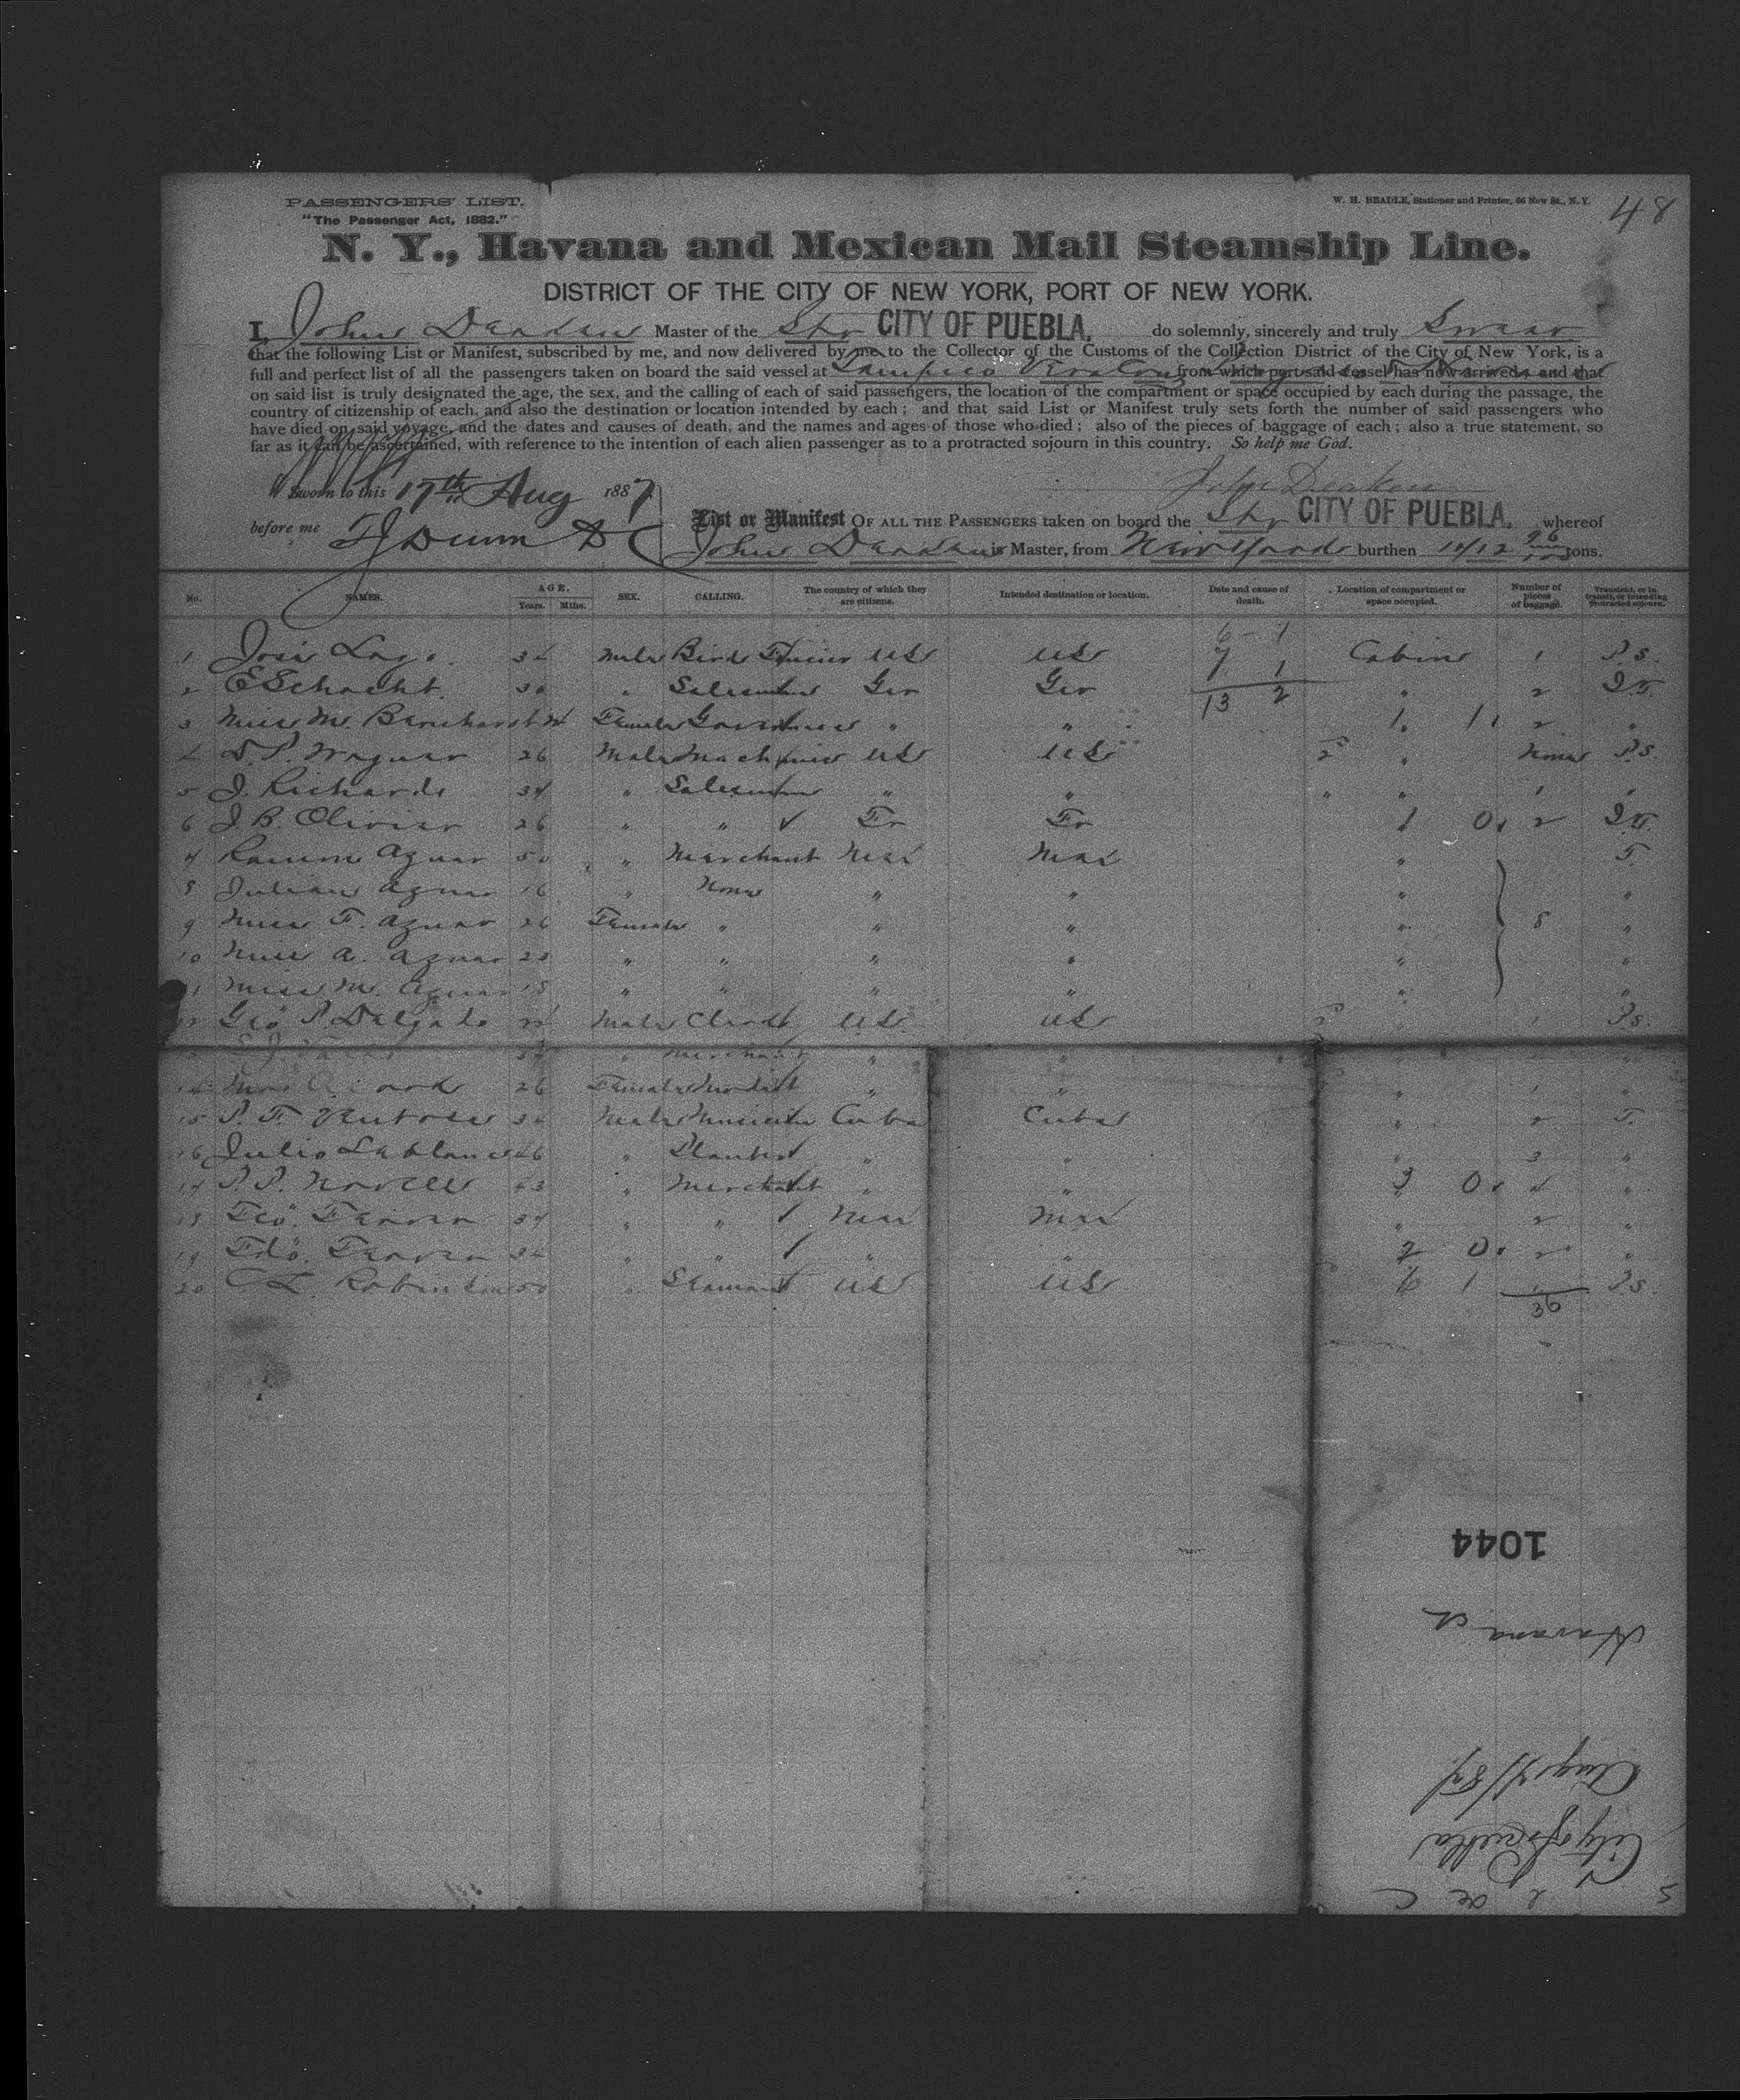 PASSENGERS' LIST.
"The Passenger Act, 1882."
W. H. BEADLE, Stationer and Printer, 66 New St., N. Y.
48
N. Y., Havana and Mexican Mail Steamship Line.
DISTRICT OF THE CITY OF NEW YORK, PORT OF NEW YORK.
I, John Deaken Master of the Str CITY OF PUEBLA, do solemnly, sincerely and truly Swear
that the following List or Manifest, subscribed by me, and now delivered by me to the Collector of the Customs of the Collection District of the City of New York, is a
full and perfect list of all the passengers taken on board the said vessel at Tampico Vera Cruz from which port said vessel has now arrived; and that
on said list is truly designated the age, the sex, and the calling of each of said passengers, the location of the compartment or space occupied by each during the passage, the
country of citizenship of each, and also the destination or location intended by each; and that said List or Manifest truly sets forth the number of said passengers who
have died on said voyage, and the dates and causes of death, and the names and ages of those who died; also of the pieces of baggage of each; also a true statement, so
far as it can be ascertained, with reference to the intention of each alien passenger as to a protracted sojourn in this country. So help me God.
Sworn to this 17th Aug 1887
John Deaken
before me TJ Dunn DC
List or Manifest OF ALL THE PASSENGERS taken on board the Str CITY OF PUEBLA, whereof
John Deaken is Master, from New York burthen tons.
No. NAMES. AGE. Years. Mths. SEX. CALLING. The country of which they are citizens. Intended destination or location. Date and cause of death. Location of compartment or space occupied. Number of pieces of baggage. Transient, or in transit, or intending protracted sojourn.
6 1
1 José Lago 34 Male Bird Fancier US US 7 1 Cabin 1 P.S.
2 E Schacht 30 " Salesman Ger Ger 13 2 " 2 I.T.
3 Miss M. Bernhardt Female Governess " " 1 1 2 "
4 D. P. Wagner 26 Male Machinist US US " None P.S.
5 J. Richards 34 " Salesman " " " 1 "
6 J. B. Olivier 26 " " Fr Fr 1 0 2 I.T.
7 Ramon Aznar 50 " Merchant Mex Mex " T.
8 Julian Aznar 16 " None " " " "
9 Miss F. Aznar 26 Female " " " " 8 "
10 Miss A. Aznar 23 " " " " " "
11 Miss M. Aznar 18 " " " " " "
12 Geo P. Delgado Male Clerk US US 1 P.S.
Merchant " "
14 Mrs 26 Female Modist " " " 1 "
15 P. F. Ventosa 34 Male Musician Cuba Cuba " 2 T.
16 Julio Leblanc 46 " Planter " " " 3 "
17 P. P. Novelle 43 " Merchant " " 3 0 4 "
18 Teo. Ferrer 37 " " Mex Mex " 2 "
19 Fdo. Ferrer 34 " " " " 2 0 2 "
20 C L. Robinson 50 " Seaman US US 6 1 1 P.S.
36
1044
Havana
Aug 17/87
City of Puebla